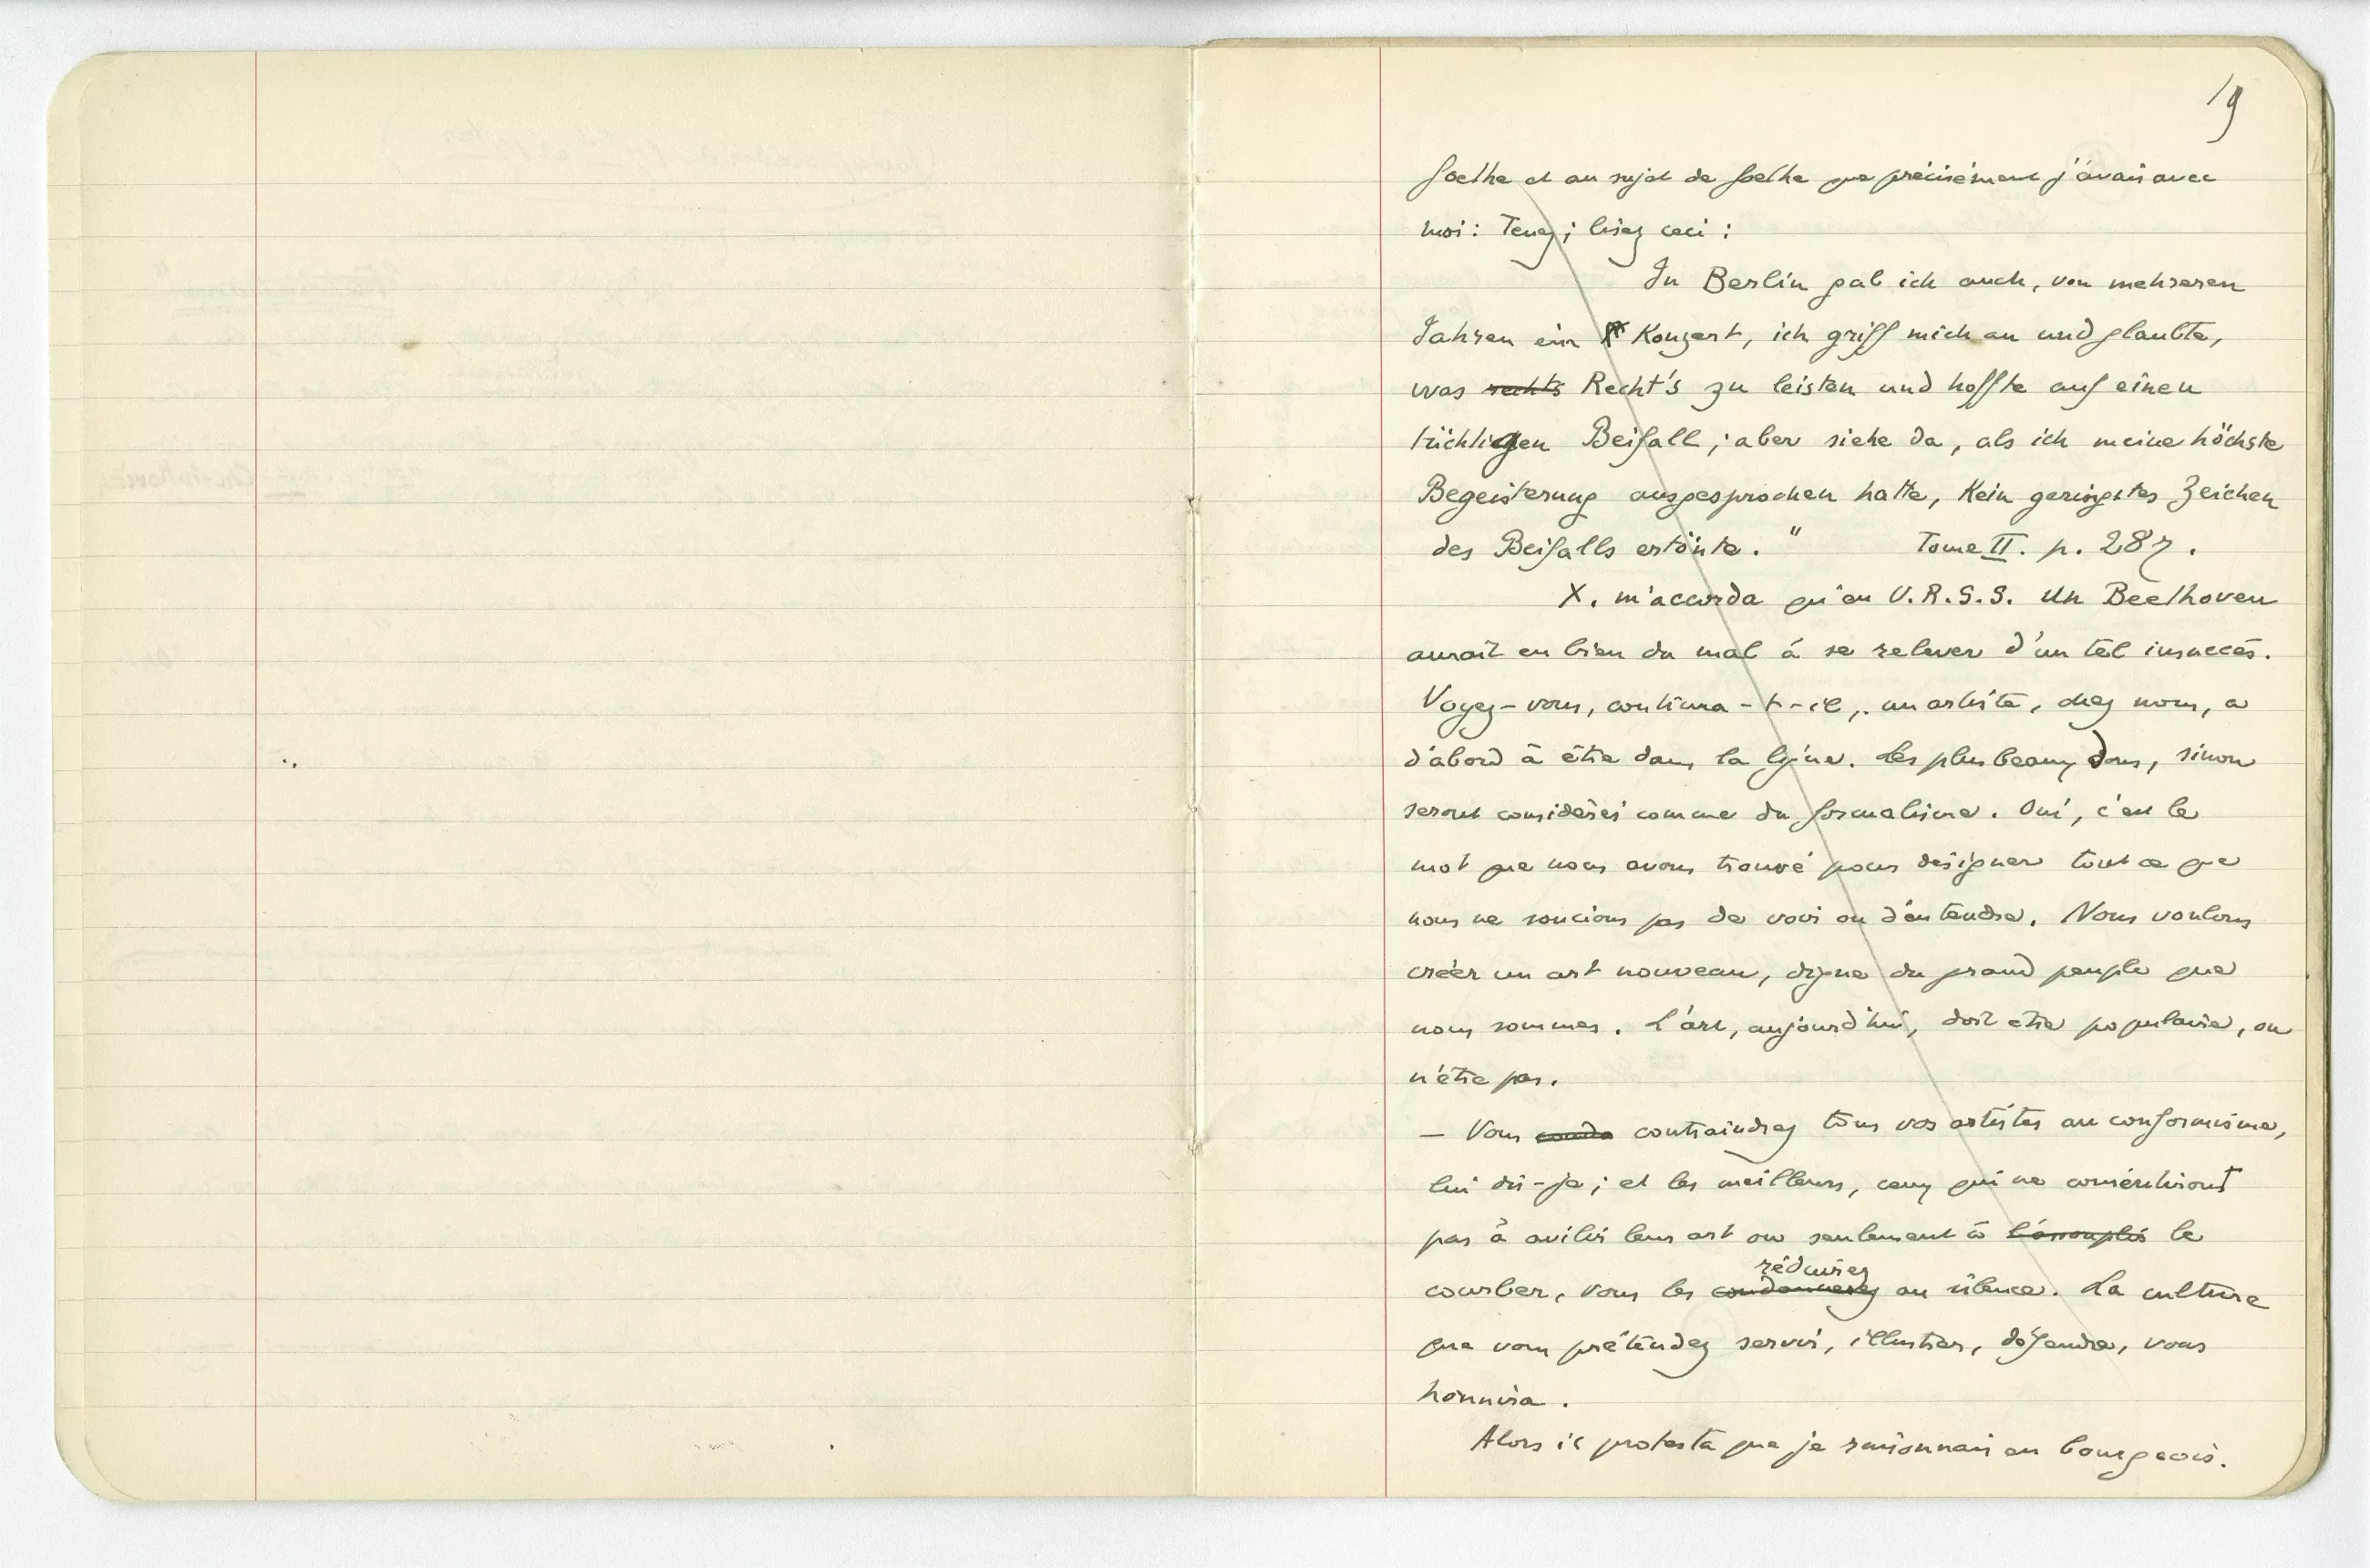 19
Goethe et au sujet de Goethe que précisément j'avais avec
moi : Tenez ; lisez ceci :
In Berlin gab ich auch, von mehreren
Jahren ein Konzert, ich griff mich an und glaubte,
was rechts Recht's zu leisten und hoffte auf einen
tüchtigen Beifall ; aber siehe da, als ich meine höchste
Begeisterung ausgesprochen hatte, kein geringstes Zeichen
des Beifalls ertönte. " Tome II. p. 287.
X. m'accorda qu'en U.R.S.S. un Beethoven
aurait eu bien du mal à se relever d'un tel insuccès.
Voyez-vous, continua-t-il, un artiste, chez nous, a
d'abord à être dans la ligne. Les plus beaux dons, sinon
seront considérés comme du formalisme. Oui, c'est le
mot que nous avons trouvé pour désigner tout ce que
nous ne soucions pas de voir ou d'entendre. Nous voulons
créer un art nouveau, digne du grand peuple que
nous sommes. L'art, aujourd'hui, doit être populaire, ou
n'être pas.
— Vous contraindrez tous vos artistes au conformisme,
lui dis-je ; et les meilleurs, ceux qui ne consentiront
pas à avilir leur art ou seulement à l'assouplir le
réduirez
courber, vous les condamnerez au silence. La culture
que vous prétendez servir, illustrer, défendre, vous
honnira.
Alors il protesta que je raisonnais en bourgeois.